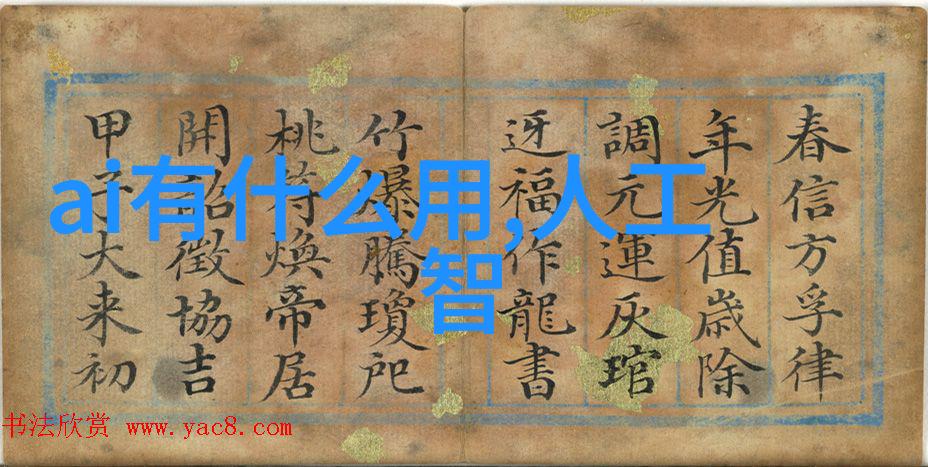 春信方孚律
年光值歲除
調元運灰琯
迓福作龍書
竹爆騰瓊戺
桃符煥帝居
開徵協吉
甲子大来初
ai有什么用,人工
智
书法欣赏 www.yac8.com